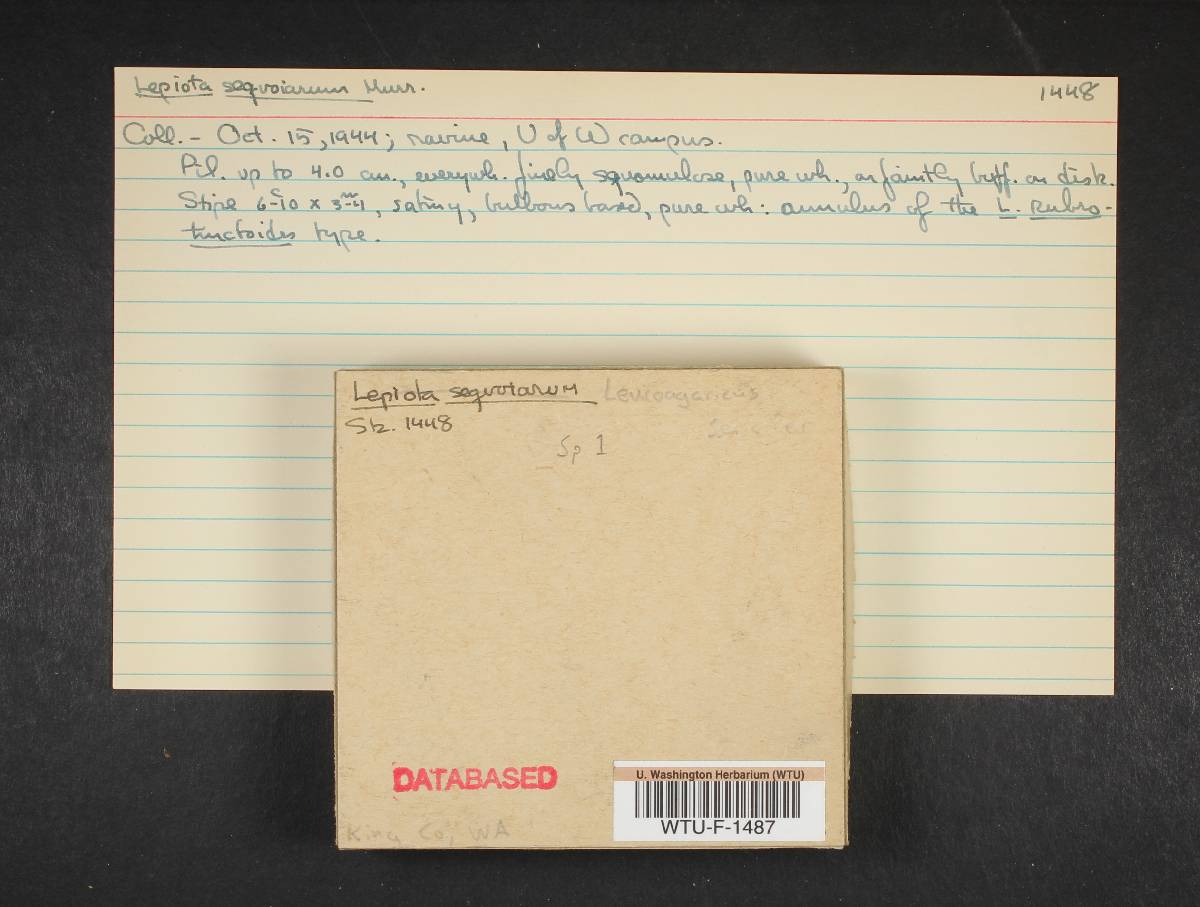 Lepiota sequoiarum Murr. 1448
Coll. - Oct. 15, 1944; ravine, U of W campus.
Pil. up to 4.0 cm., everywh. finely squamulose, pure wh., or faintly buff. on disk.
Stipe 6-10 x 3-4, satiny, bulbous based, pure wh: annulus of the L. rubro-
tinctoides type.
Lepiota sequoiarum Leucoagaricus
Stz. 1448
Sp 1
DATABASED
U. Washington Herbarium (WTU)
WTU-F-1487
King Co; WA